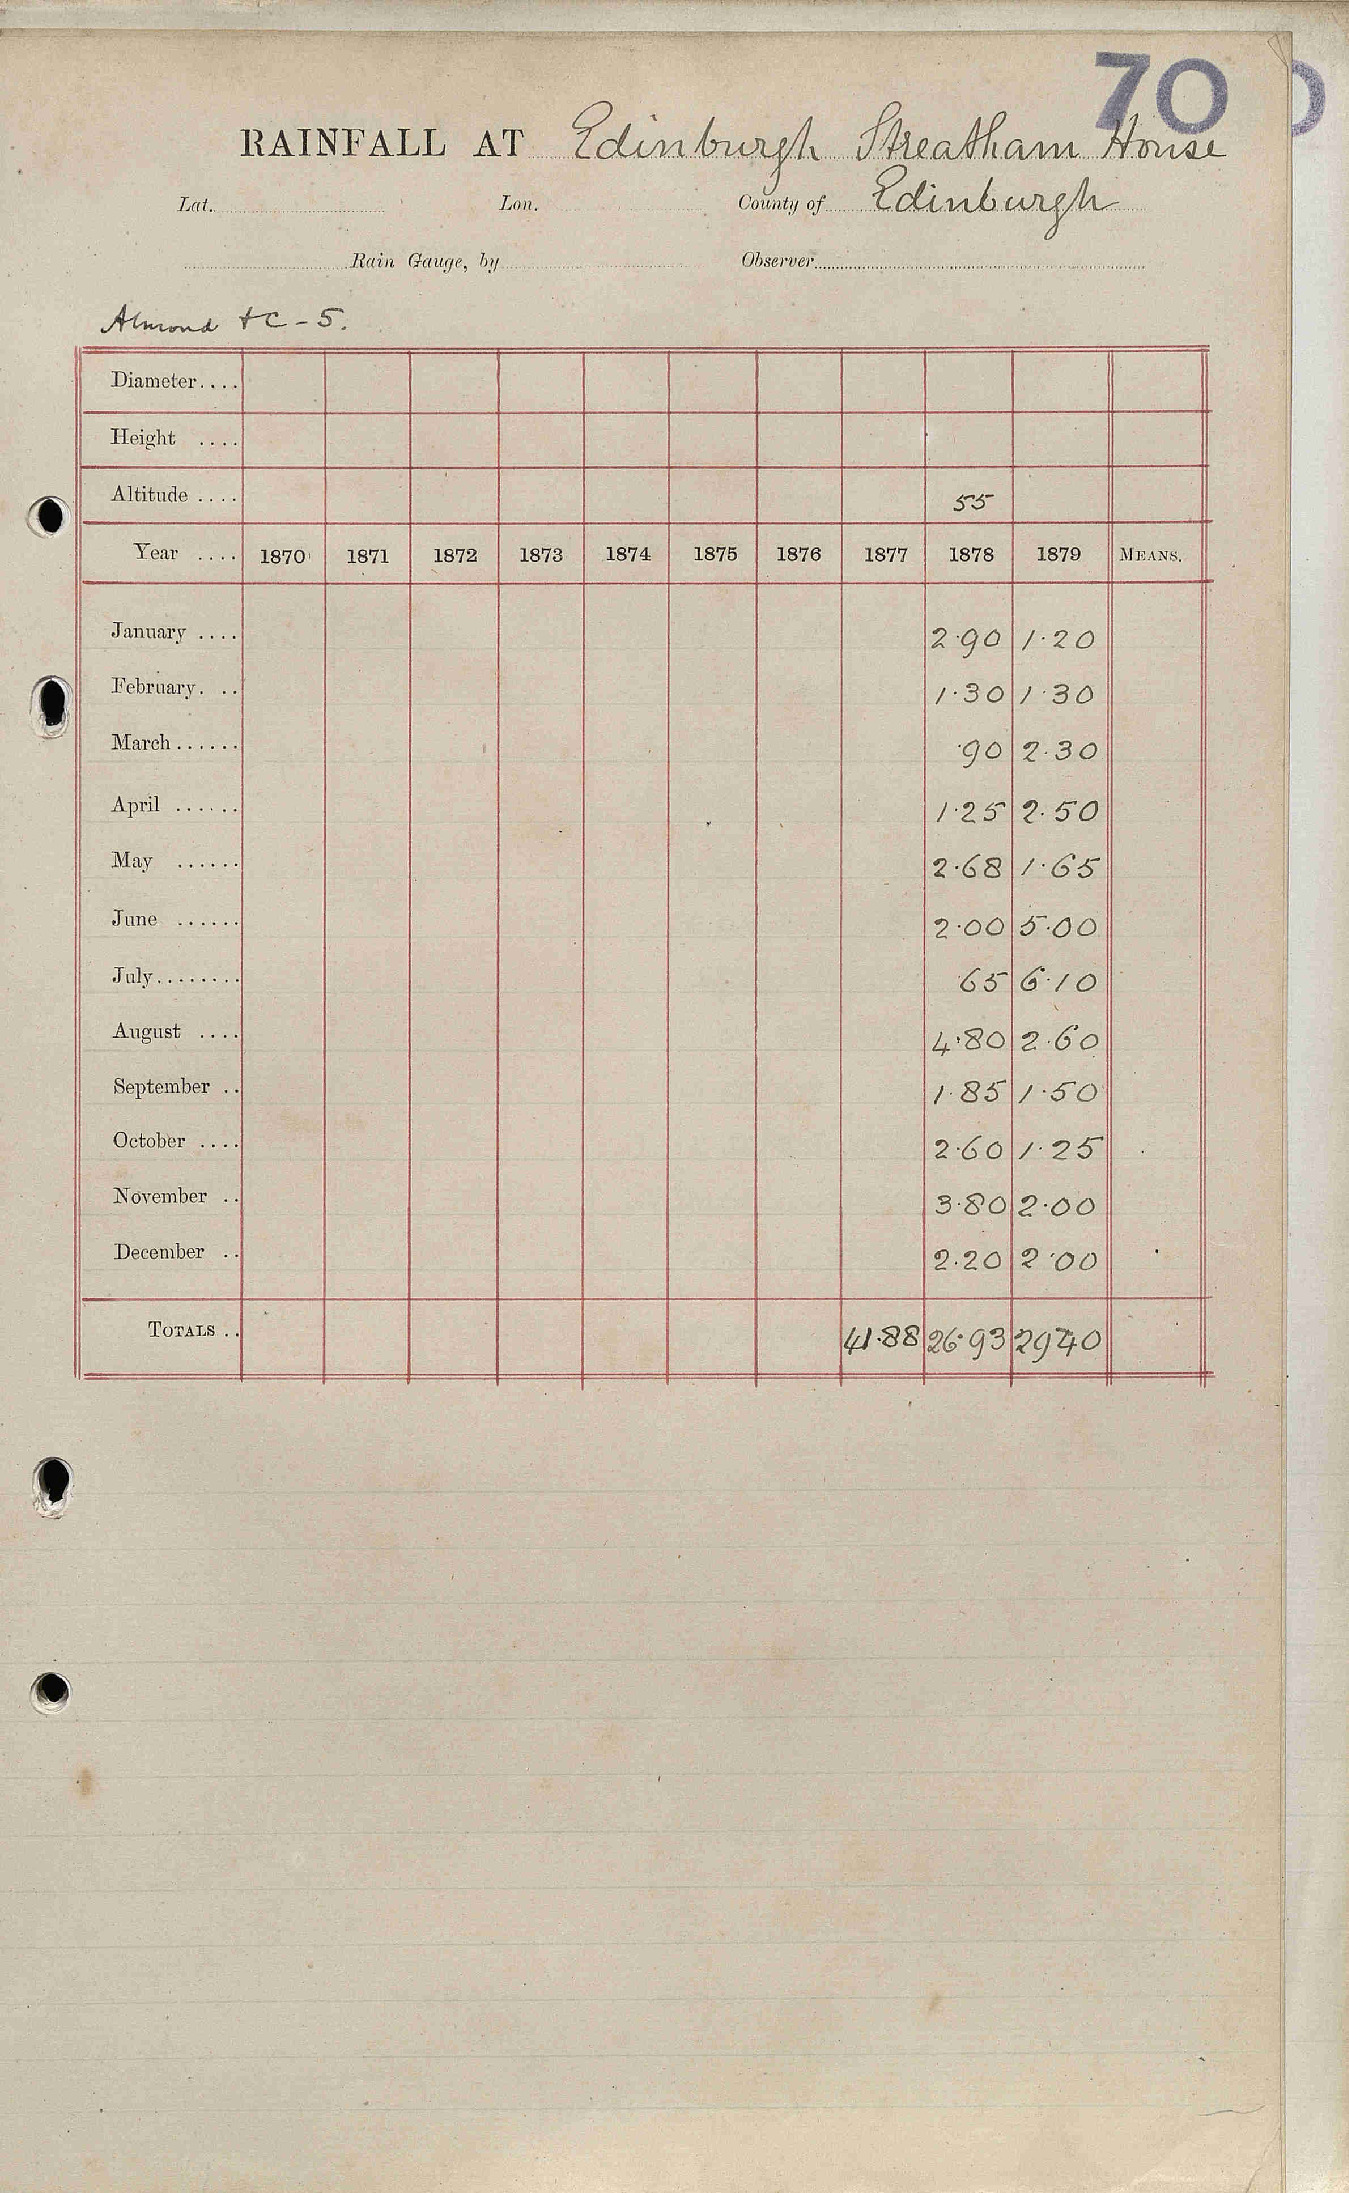 70
RAINFALL AT Edinburgh Streatham House
Lat. Lon. County of Edinburgh
Rain Gauge, by Observer
Almond &C - 5.
Diameter....
Height ....
Altitude .... 55
Year .... 1870 1871 1872 1873 1874 1875 1876 1877 1878 1879 MEANS.
January .... 2.90 1.20
February. .. 1.30 1.30
March...... .90 2.30
April ...... 1.25 2.50
May ...... 2.68 1.65
June ...... 2.00 5.00
July........ .65 6.10
August .... 4.80 2.60
September .. 1.85 1.50
October .... 2.60 1.25
November .. 3.80 2.00
December .. 2.20 2.00
TOTALS .. 41.88 26.93 29.40